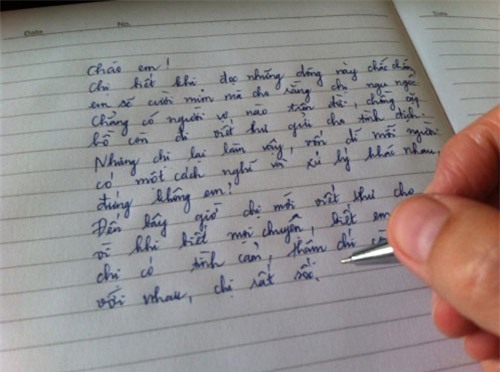 Date No.
Date
Chào em!
Chị biết khi đọc những dòng này chắc chắn
em sẽ cười mỉm mà cho rằng chị ngu ngốc
Chẳng có người vợ nào trần đời, chồng cặp
bồ còn đi viết thư gửi cho tình địch.
Nhưng chị lại làm vậy, vốn dĩ mỗi người
có một cách nghĩ và xử lý khác nhau,
đúng không em!
Đến bây giờ chị mới viết thư cho
vì khi biết mọi chuyện, biết em
chị có tình cảm, thậm chí
với nhau, chị rất sốc.